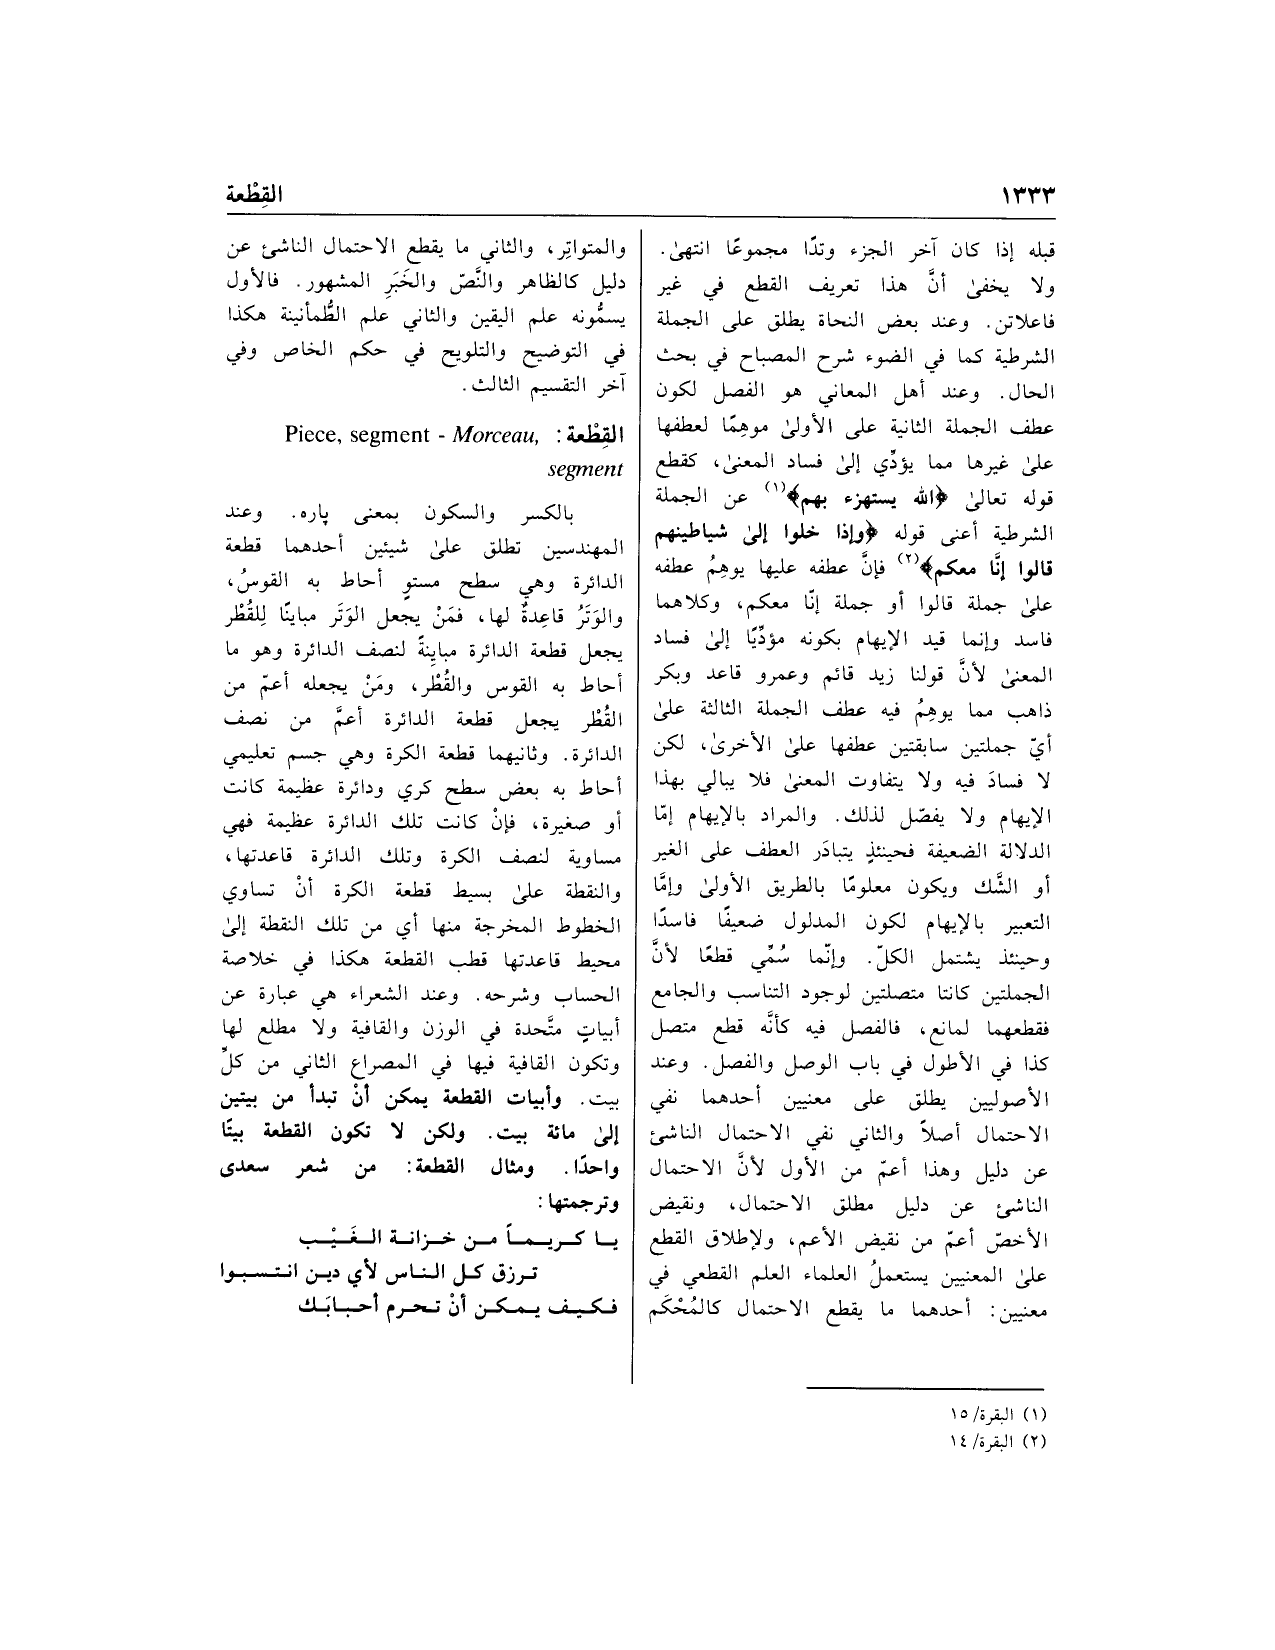 ١٣٣٣
القِطْعة
قبله إذا كان آخر الجزء وتدًا مجموعًا انتهىٰ.
ولا يخفىٰ أنَّ هذا تعريف القطع في غير
فاعلاتن. وعند بعض النحاة يطلق على الجملة
الشرطية كما في الضوء شرح المصباح في بحث
الحال. وعند أهل المعاني هو الفصل لكون
عطف الجملة الثانية على الأولىٰ موهِمًا لعطفها
علىٰ غيرها مما يؤدِّي إلىٰ فساد المعنىٰ، كقطع
قوله تعالىٰ ﴿الله يستهزء بهم﴾(١) عن الجملة
الشرطية أعنى قوله ﴿وإذا خلوا إلىٰ شياطينهم
قالوا إنَّا معكم﴾(٢) فإنَّ عطفه عليها يوهِمُ عطفه
علىٰ جملة قالوا أو جملة إنّا معكم، وكلاهما
فاسد وإنما قيد الإيهام بكونه مؤدِّيًا إلىٰ فساد
المعنىٰ لأنَّ قولنا زيد قائم وعمرو قاعد وبكر
ذاهب مما يوهِمُ فيه عطف الجملة الثالثة علىٰ
أيّ جملتين سابقتين عطفها علىٰ الأخرىٰ، لكن
لا فسادَ فيه ولا يتفاوت المعنىٰ فلا يبالي بهذا
الإيهام ولا يفصّل لذلك. والمراد بالإيهام إمّا
الدلالة الضعيفة فحينئذٍ يتبادَر العطف على الغير
أو الشَّك ويكون معلومًا بالطريق الأولىٰ وإمَّا
التعبير بالإيهام لكون المدلول ضعيفًا فاسدًا
وحينئذ يشتمل الكلّ. وإنّما سُمِّي قطعًا لأنَّ
الجملتين كانتا متصلتين لوجود التناسب والجامع
فقطعهما لمانع، فالفصل فيه كأنَّه قطع متصل
كذا في الأطول في باب الوصل والفصل. وعند
الأصوليين يطلق على معنيين أحدهما نفي
الاحتمال أصلاً والثاني نفي الاحتمال الناشئ
عن دليل وهذا أعمّ من الأول لأنَّ الاحتمال
الناشئ عن دليل مطلق الاحتمال، ونقيض
الأخصّ أعمّ من نقيض الأعم، ولإطلاق القطع
علىٰ المعنيين يستعملُ العلماء العلم القطعي في
معنيين: أحدهما ما يقطع الاحتمال كالمُحْكَم
والمتواتِر، والثاني ما يقطع الاحتمال الناشئ عن
دليل كالظاهر والنَّصّ والخَبَرِ المشهور. فالأول
يسمُّونه علم اليقين والثاني علم الطُّمأنينة هكذا
في التوضيح والتلويح في حكم الخاص وفي
آخر التقسيم الثالث.
القِطْعة: Piece, segment - Morceau,
segment
بالكسر والسكون بمعنى پاره. وعند
المهندسين تطلق علىٰ شيئين أحدهما قطعة
الدائرة وهي سطح مستوٍ أحاط به القوسُ،
والوَتَرُ قاعِدةٌ لها، فمَنْ يجعل الوَتَر مباينًا لِلقُطْر
يجعل قطعة الدائرة مبايِنةً لنصف الدائرة وهو ما
أحاط به القوس والقُطْر، ومَنْ يجعله أعمّ من
القُطْر يجعل قطعة الدائرة أعمَّ من نصف
الدائرة. وثانيهما قطعة الكرة وهي جسم تعليمي
أحاط به بعض سطح كري ودائرة عظيمة كانت
أو صغيرة، فإنْ كانت تلك الدائرة عظيمة فهي
مساوية لنصف الكرة وتلك الدائرة قاعدتها،
والنقطة علىٰ بسيط قطعة الكرة أنْ تساوي
الخطوط المخرجة منها أي من تلك النقطة إلىٰ
محيط قاعدتها قطب القطعة هكذا في خلاصة
الحساب وشرحه. وعند الشعراء هي عبارة عن
أبياتٍ متَّحدة في الوزن والقافية ولا مطلع لها
وتكون القافية فيها في المصراع الثاني من كلِّ
بيت. وأبيات القطعة يمكن أنْ تبدأ من بيتين
إلىٰ مائة بيت. ولكن لا تكون القطعة بيتًا
واحدًا. ومثال القطعة: من شعر سعدى
وترجمتها:
يا كريماً من خزانة الغَيْب
ترزق كل الناس لأي دين انتسبوا
فكيف يمكن أنْ تحرم أحبابَك
(١) البقرة/ ١٥
(٢) البقرة/ ١٤